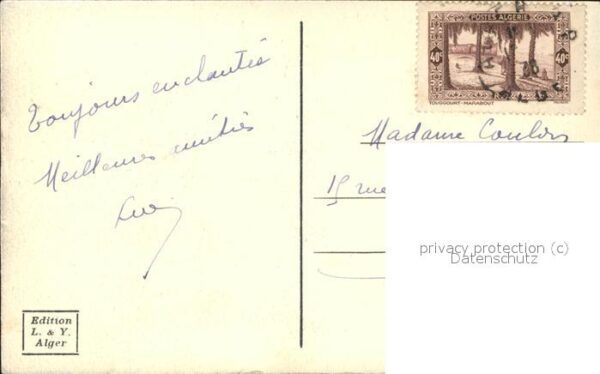 Toujours enchantés
Meilleures amitiés
POSTES ALGERIE
40c
40c
TOUGGOURT - MARABOUT
Madame
15 rue
privacy protection (c)
Datenschutz
Edition
L. & Y.
Alger